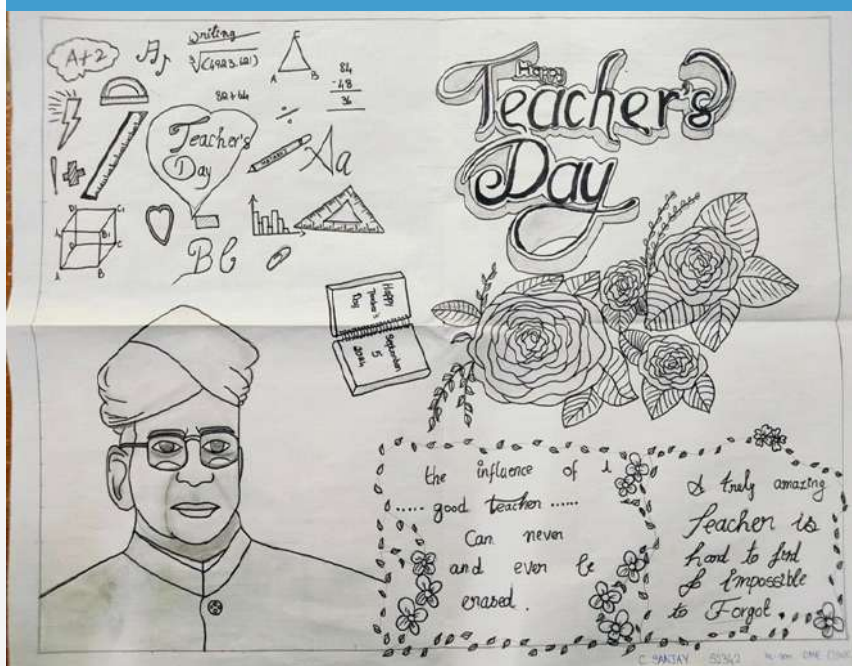 A+2
writing
∛(4923.621)
E
A B
82+64
84
-48
36
÷
Teacher's
Day
Aa
D1 C1
A1 B1
D C
A B
Bb
Happy
Teacher's
Day
Happy
Teacher's
Day
September
5
2024
the influence of a
..... good teacher ......
Can never
and ever be
erased.
A truly amazing
Teacher is
hard to find
& Impossible
to Forgot.
C SANJAY